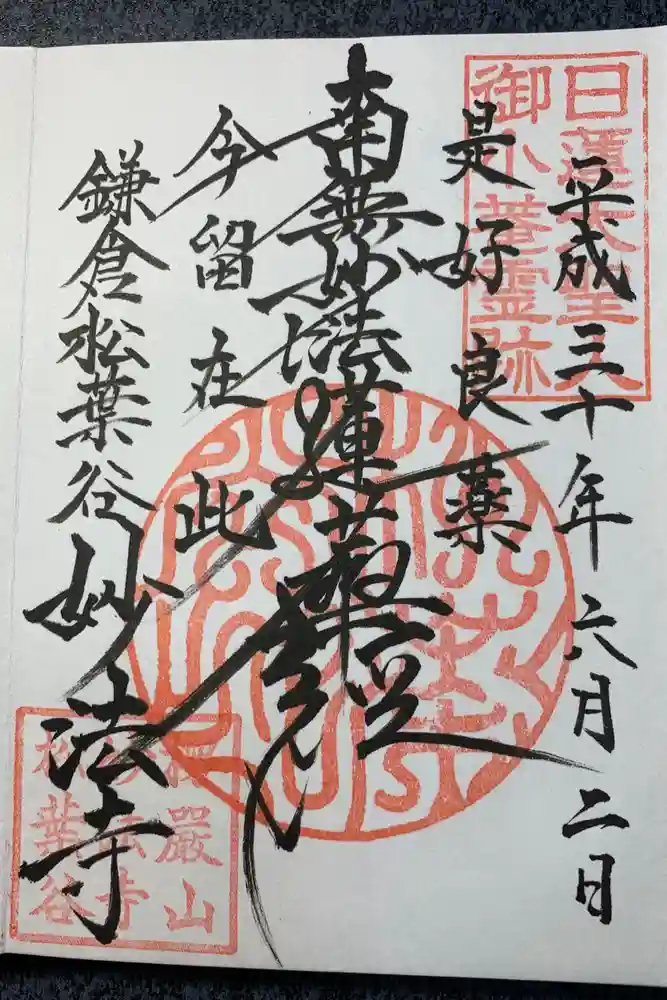 日蓮大聖人
御小菴霊跡
平成三十年六月二日
是好良薬
南無妙法蓮華経
今留在此
鎌倉松葉谷妙法寺
楞厳山
妙法寺
松葉谷